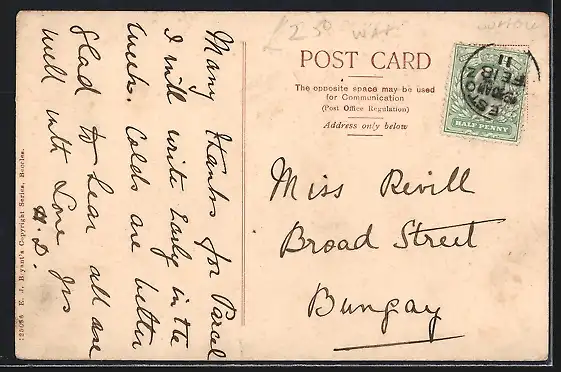 £2.50
POST CARD
The opposite space may be used
for Communication
(Post Office Regulation)
Address only below
HALF PENNY
ESTON
FE 18
11
Many thanks for Parcel
I will write Early in the
week. Colds are better
glad to hear all are
well with Love Yrs
H. D.
Miss Revill
Broad Street
Bungay
E. J. Bryant's Copyright Series, Beccles.